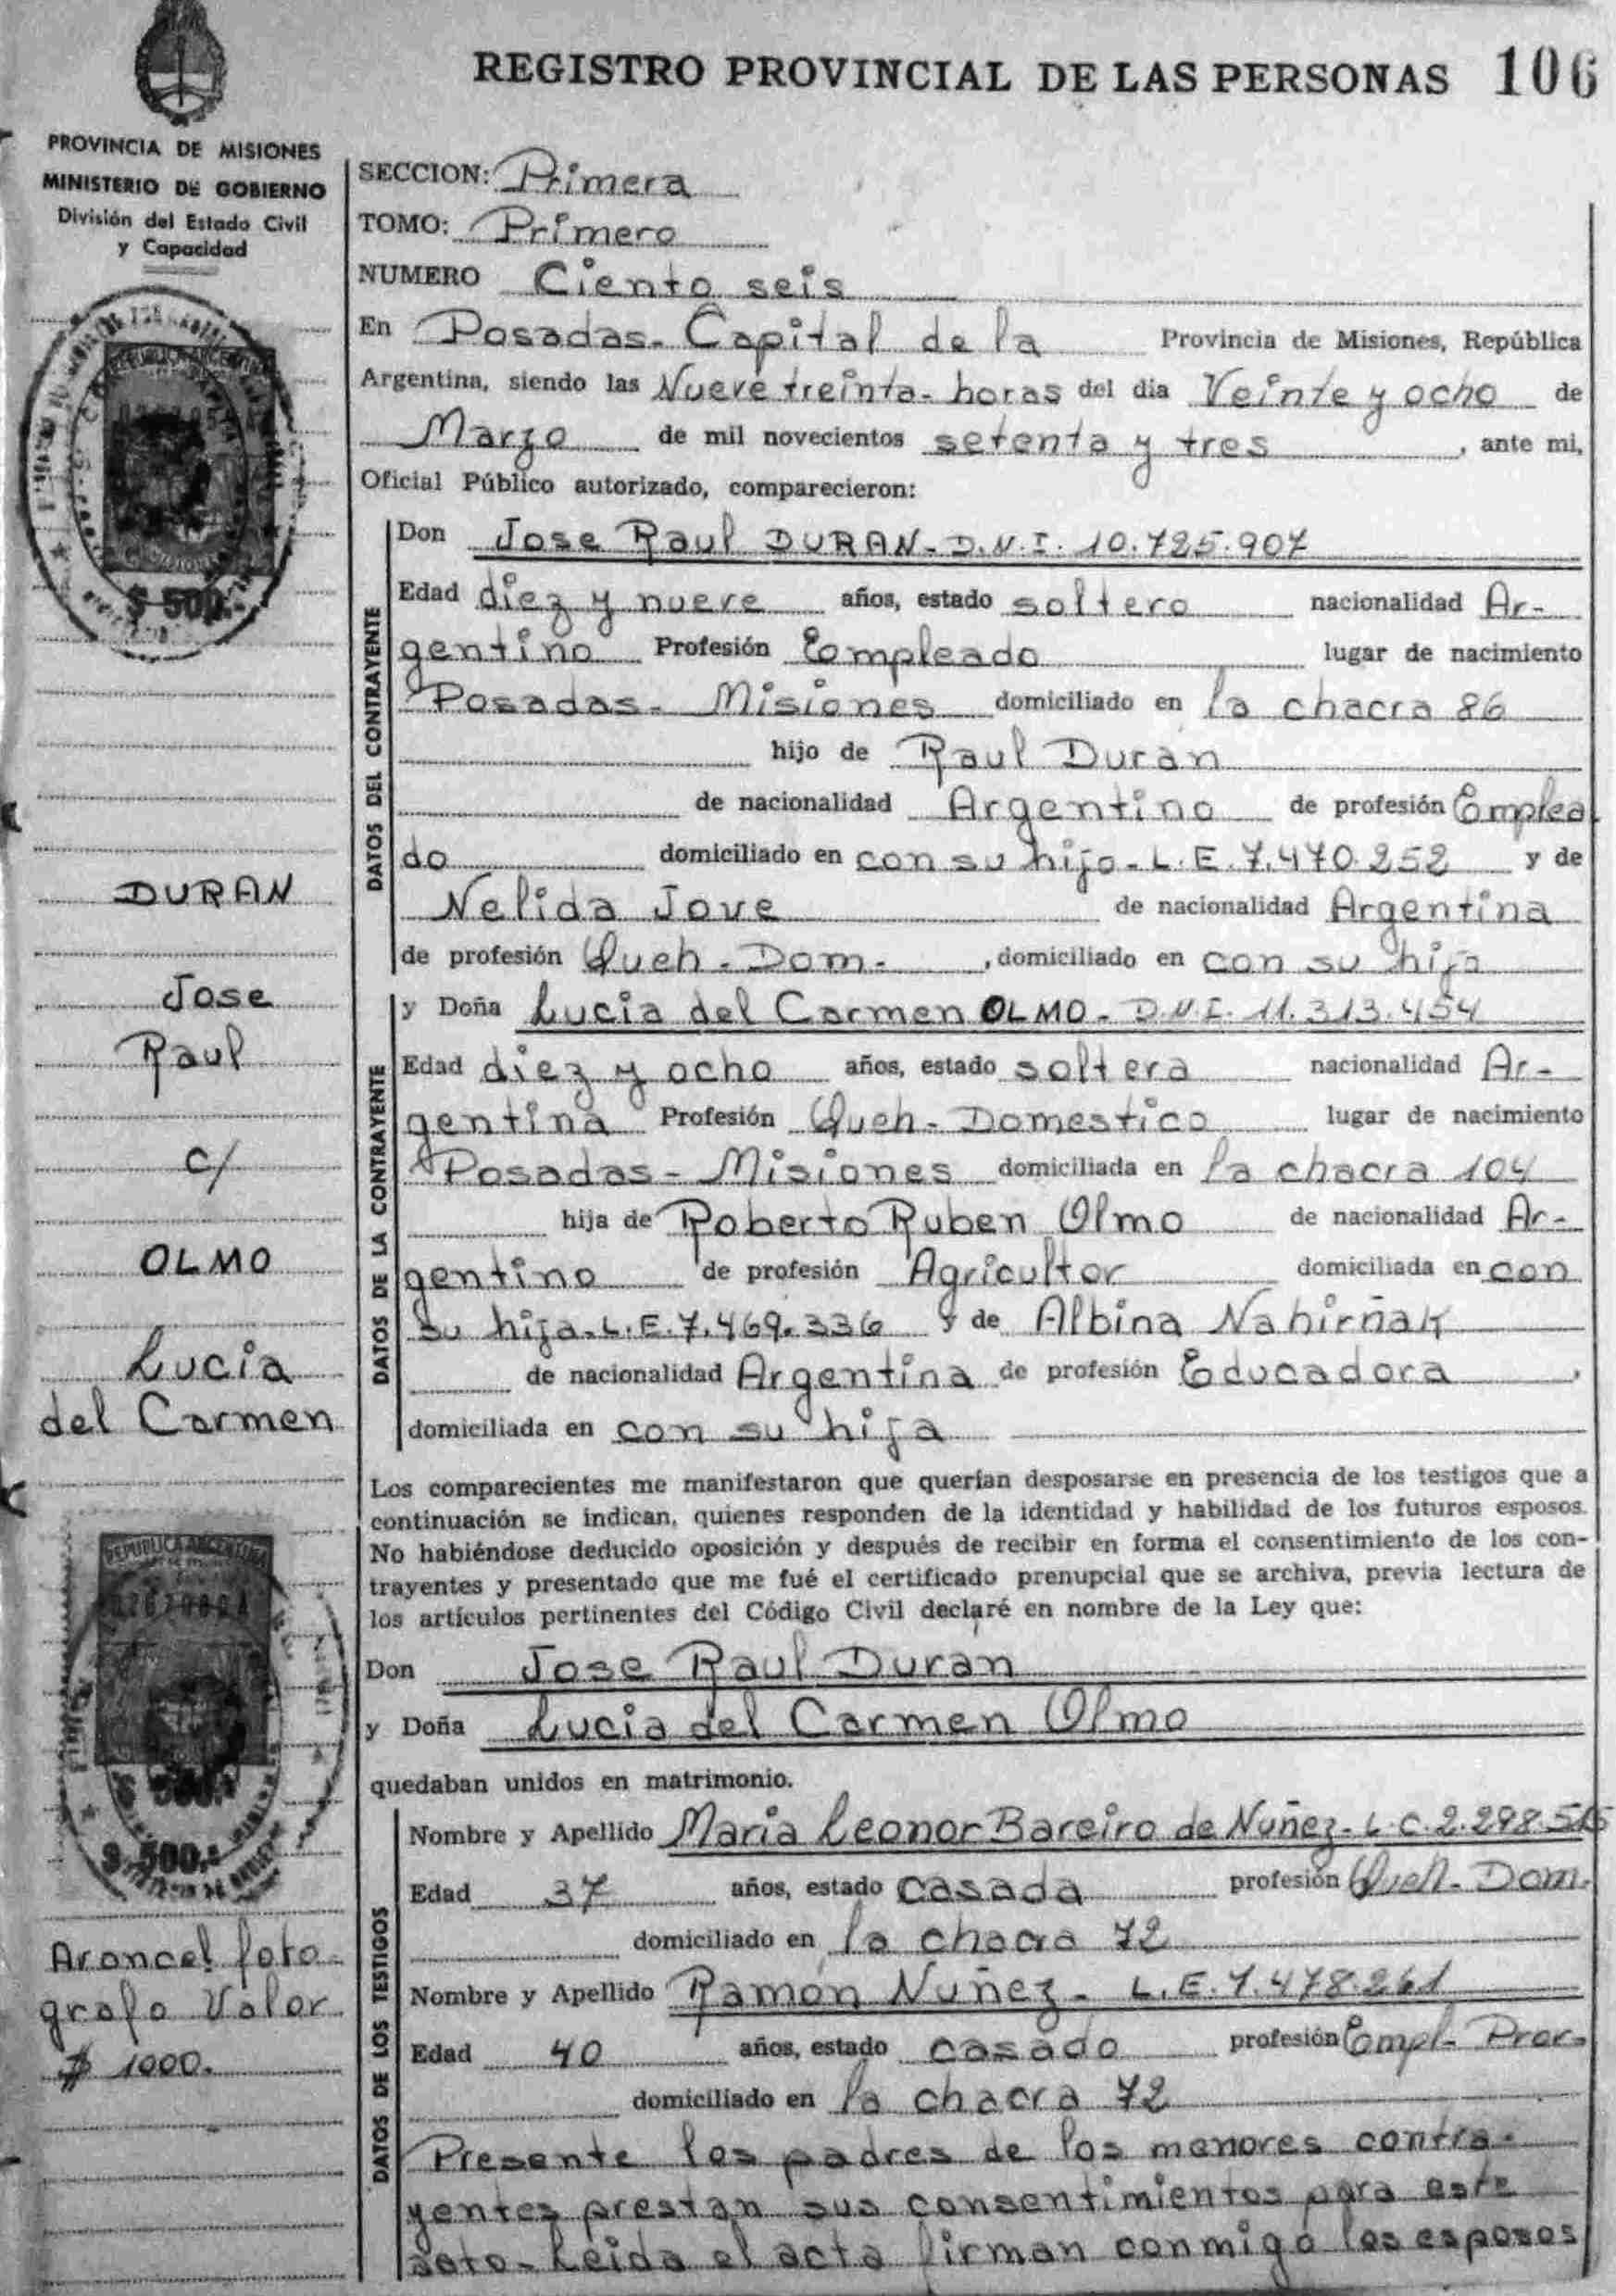 REGISTRO PROVINCIAL DE LAS PERSONAS 106
PROVINCIA DE MISIONES
MINISTERIO DE GOBIERNO
División del Estado Civil
y Capacidad
SECCION: Primera
TOMO: Primero
NUMERO Ciento seis
En Posadas- Capital de la Provincia de Misiones, República
Argentina, siendo las Nueve treinta- horas del dia Veinte y ocho de
Marzo de mil novecientos setenta y tres, ante mi,
Oficial Público autorizado, comparecieron:
REPUBLICA ARGENTINA
$ 500.-
DATOS DEL CONTRAYENTE
Don Jose Raul DURAN- D.N.I. 10.725.907
Edad diez y nueve años, estado soltero nacionalidad Ar-
gentino Profesión Empleado lugar de nacimiento
Posadas- Misiones domiciliado en la chacra 86
hijo de Raul Duran
de nacionalidad Argentino de profesión Emplea
do domiciliado en con su hijo- L.E. 7.470.252 y de
Nelida Jove de nacionalidad Argentina
de profesión Queh-Dom-, domiciliado en con su hijo
DATOS DE LA CONTRAYENTE
y Doña Lucia del Carmen OLMO- D.N.I. 11.313.454
Edad diez y ocho años, estado soltera nacionalidad Ar-
gentina Profesión Queh-Domestico lugar de nacimiento
Posadas- Misiones domiciliada en la chacra 104
hija de Roberto Ruben Olmo de nacionalidad Ar-
gentino de profesión Agricultor domiciliada en con
su hija-L.E.7.469.336 y de Albina Nahirñak
de nacionalidad Argentina de profesión Educadora,
domiciliada en con su hija
DURAN
Jose
Raul
c/
OLMO
Lucia
del Carmen
Los comparecientes me manifestaron que querían desposarse en presencia de los testigos que a
continuación se indican, quienes responden de la identidad y habilidad de los futuros esposos.
No habiéndose deducido oposición y después de recibir en forma el consentimiento de los con-
trayentes y presentado que me fué el certificado prenupcial que se archiva, previa lectura de
los artículos pertinentes del Código Civil declaré en nombre de la Ley que:
Don Jose Raul Duran
y Doña Lucia del Carmen Olmo
quedaban unidos en matrimonio.
REPUBLICA ARGENTINA
$ 500.-
$ 500.-
Arancel foto-
grafo Valor
$ 1000.
DATOS DE LOS TESTIGOS
Nombre y Apellido Maria Leonor Bareiro de Nuñez- L.C. 2.298.515
Edad 37 años, estado casada profesión Queh-Dom.
domiciliado en la chacra 72
Nombre y Apellido Ramón Nuñez- L.E. 7.478.261
Edad 40 años, estado casado profesión Empl-
domiciliado en la chacra 72
Presente los padres de los menores contra-
yentes prestan sus consentimientos para este
acto- Leida el acta firman conmigo los esposos